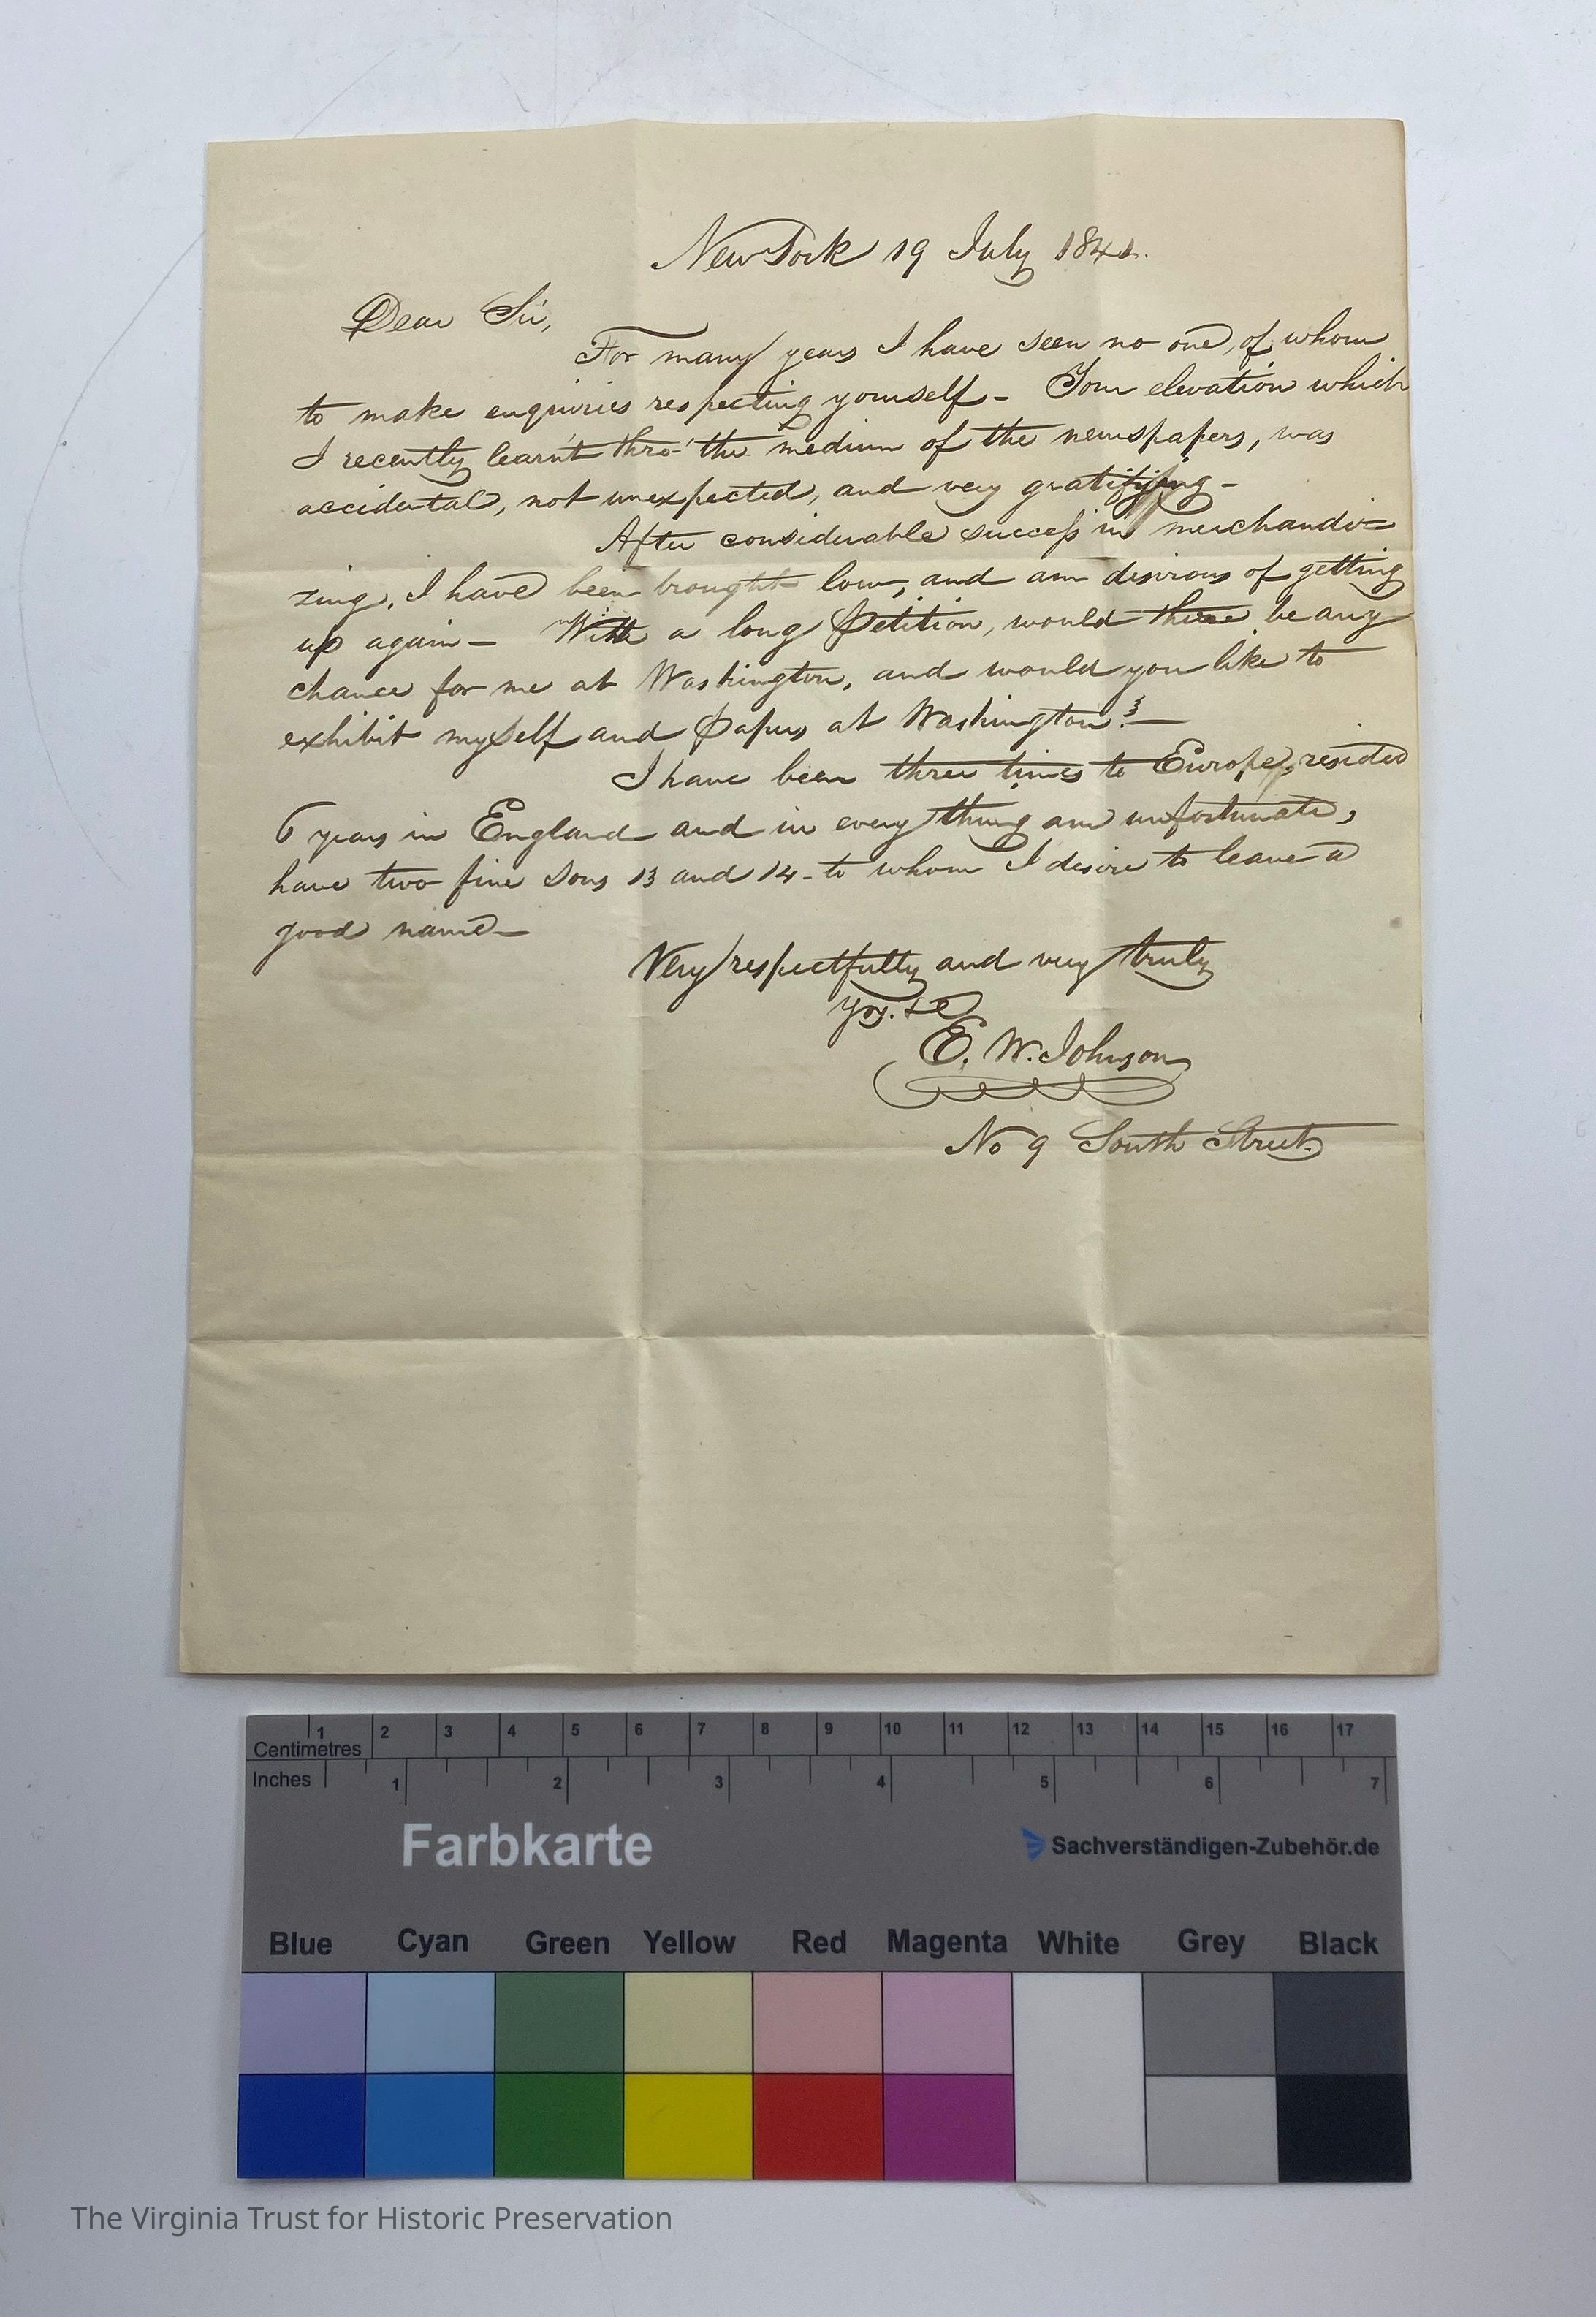 New York 19 July 1841.
Dear Sir,
For many years I have seen no one, of whom
to make enquiries respecting yourself - Your elevation which
I recently learn't thro' the medium of the newspapers, was
accidental, not unexpected, and very gratifying -
After considerable success in merchandi-
zing, I have been brought low, and am desirous of getting
up again - With a long Petition, would there be any
chance for me at Washington, and would you like to
exhibit myself and Papers at Washington? -
I have been three times to Europe, resided
6 years in England and in every thing am unfortunate,
have two fine sons 13 and 14 - to whom I desire to leave a
good name -
Very respectfully and very truly
yrs. &c
E. W. Johnson
No 9 South Street.
1 2 3 4 5 6 7 8 9 10 11 12 13 14 15 16 17
Centimetres
Inches 1 2 3 4 5 6 7
Farbkarte Sachverständigen-Zubehör.de
Blue Cyan Green Yellow Red Magenta White Grey Black
The Virginia Trust for Historic Preservation